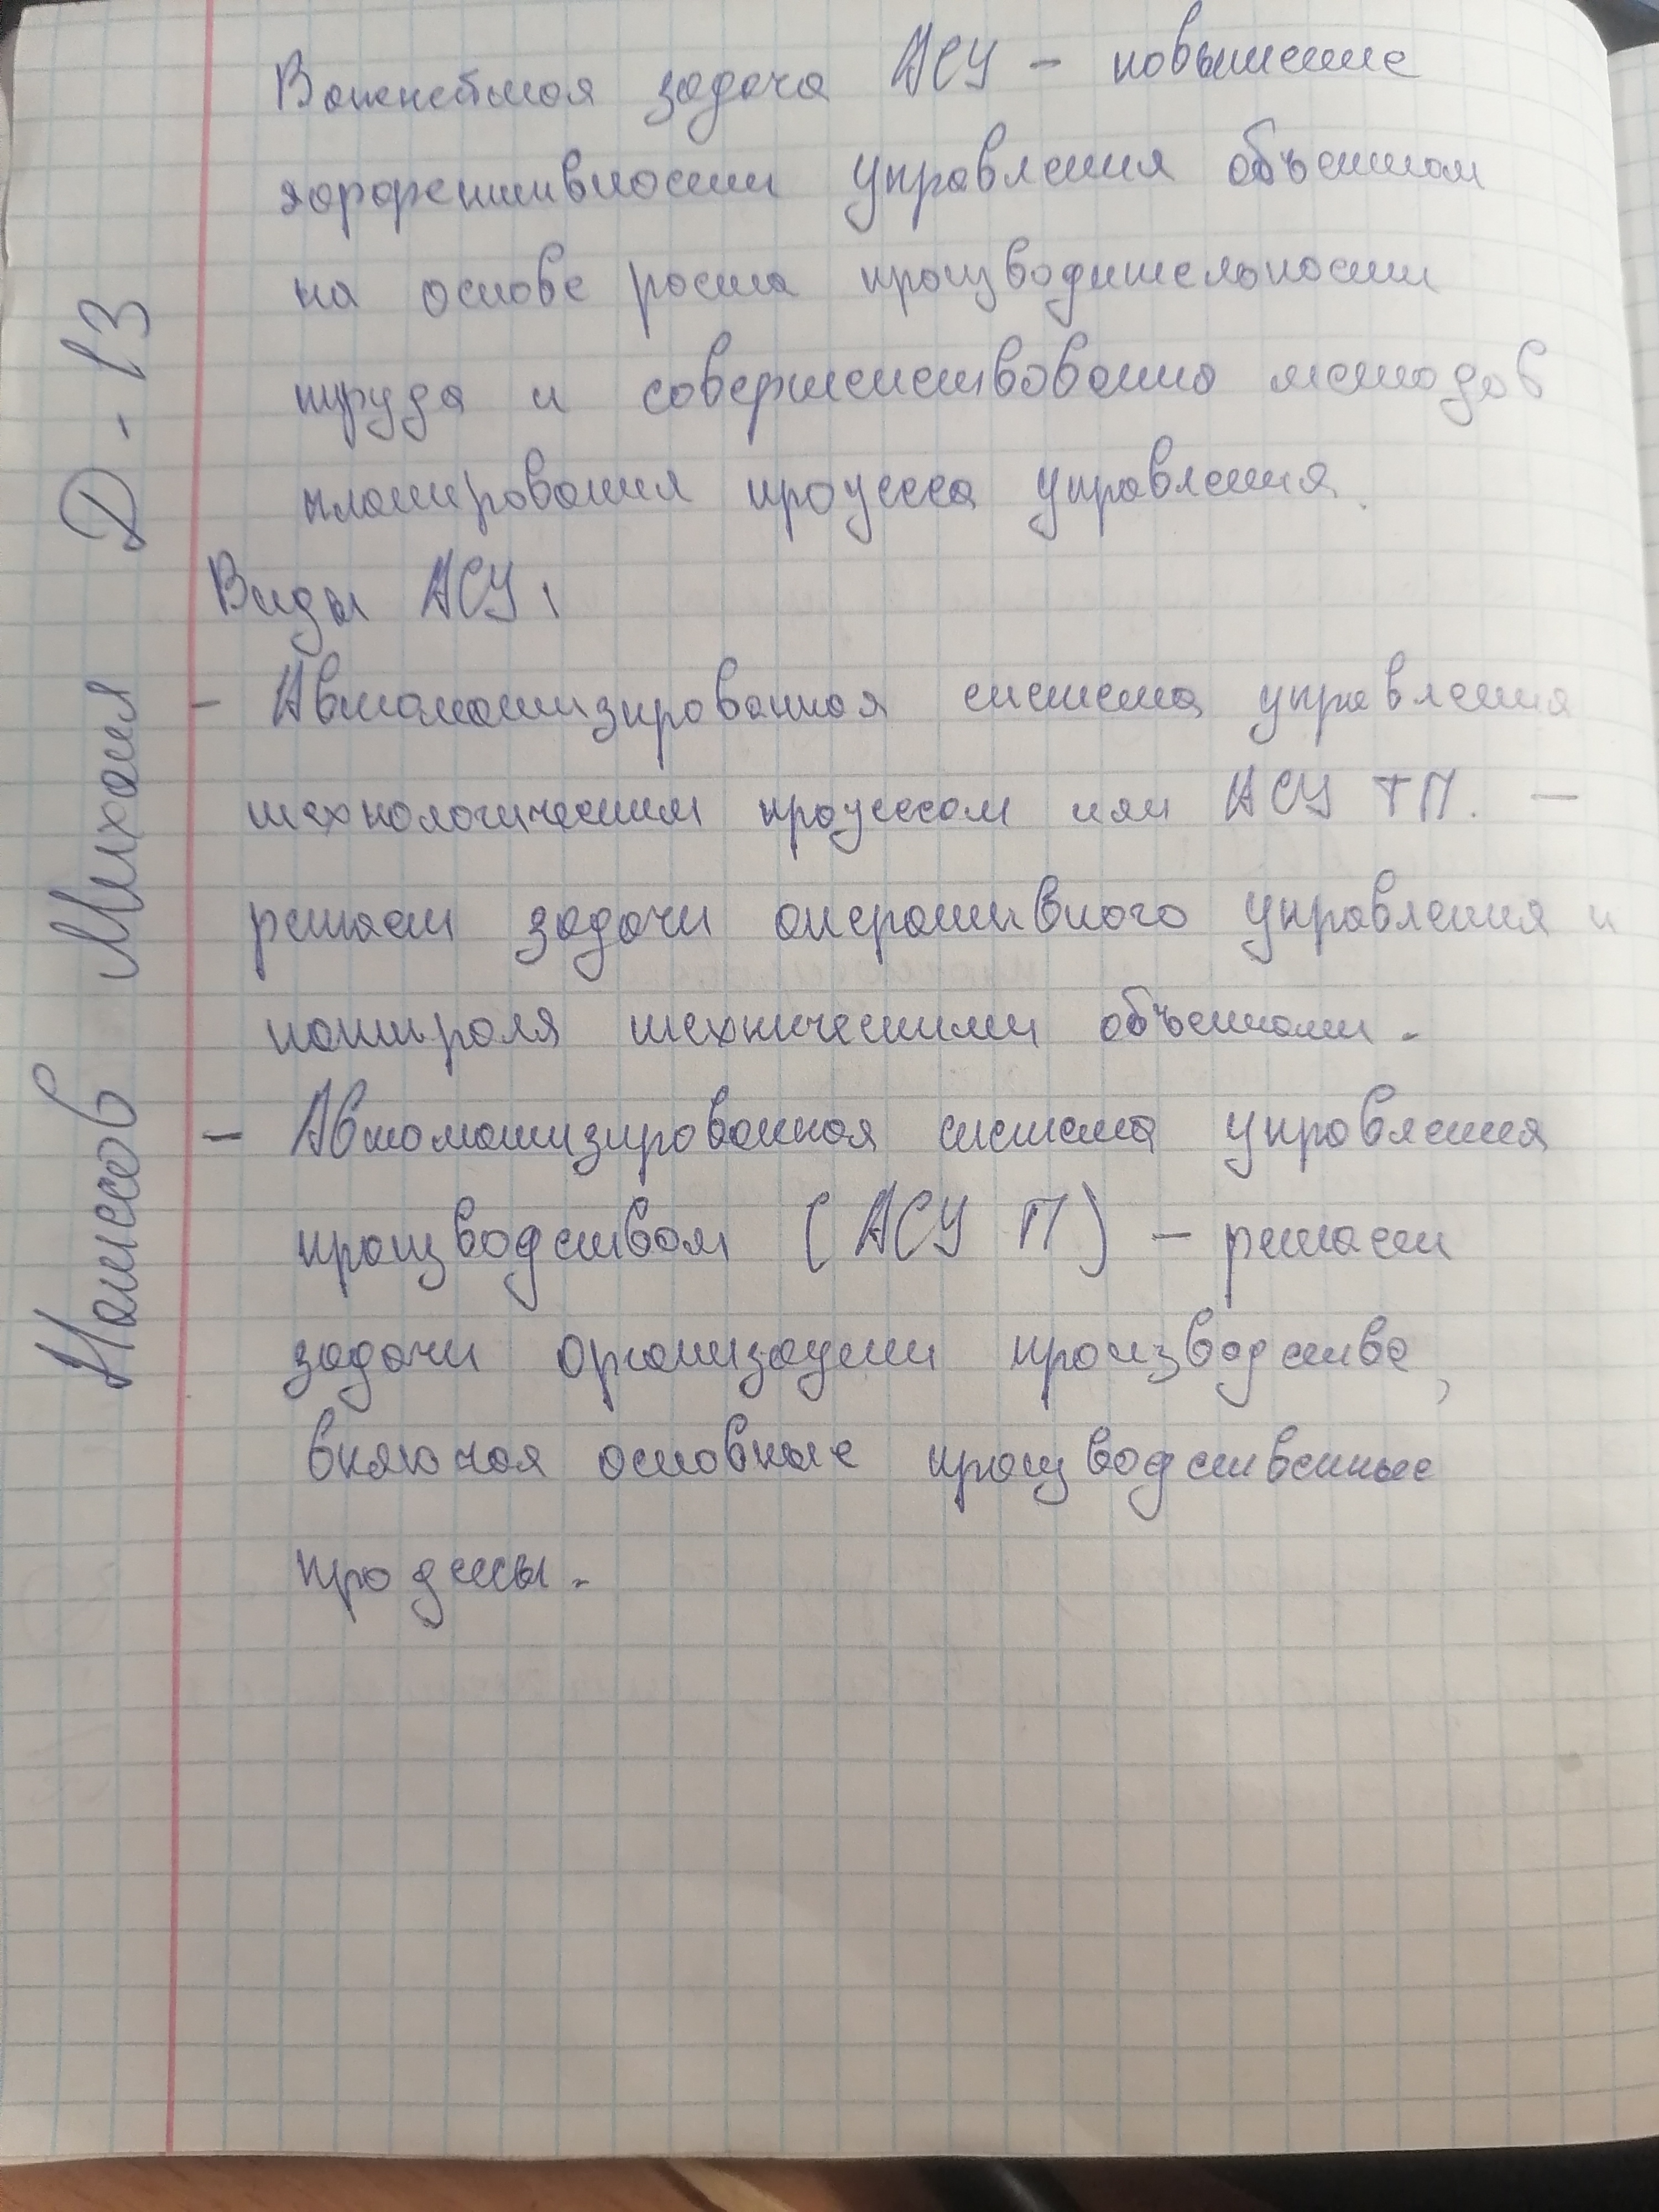 Важнейшая задача АСУ - повышение
эффективности управления объектом
на основе роста производительности
труда и совершенствования методов
планирования процесса управления.
Виды АСУ:
- Автоматизированная система управления
технологическим процессом или АСУ ТП. -
решает задачи оперативного управления и
контроля техническими объектами.
- Автоматизированная система управления
производством (АСУ П) - решает
задачи организации производства,
включая основные производственные
процессы.
Михаил Д-13